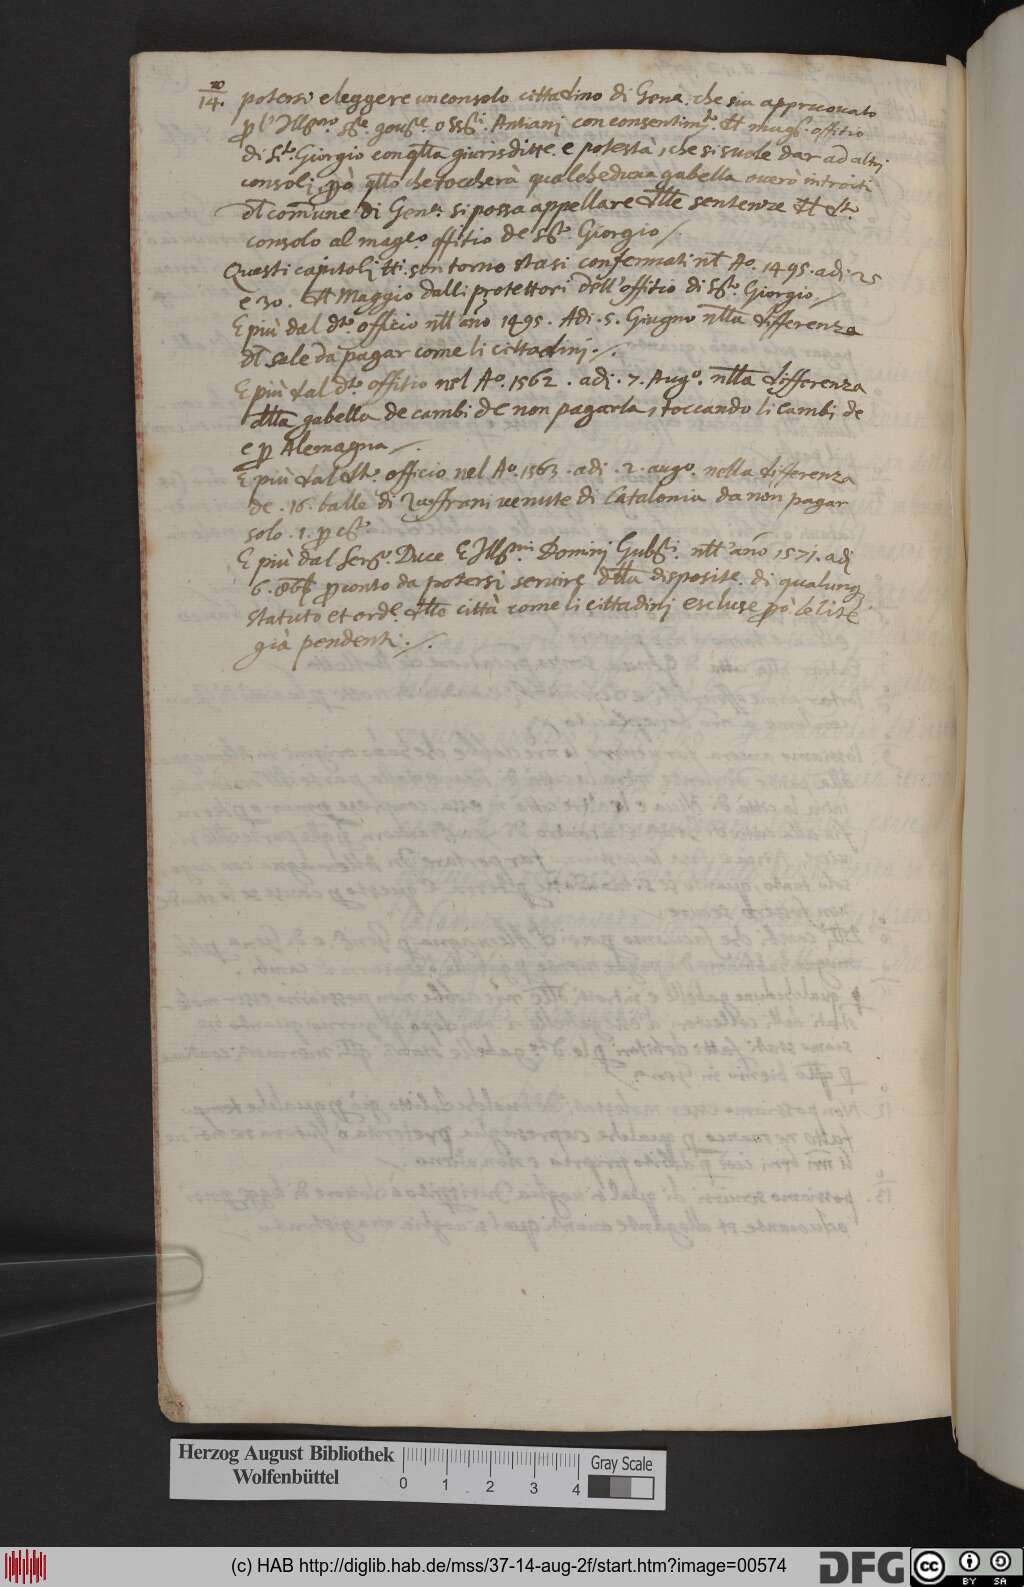 14. potersi eleggere un consolo cittadino di Gena. che sia approuato
p l'Illmo. sre. goure. o SSri. Antiani con consentimto. dl magco. offitio
di Sto. Giorgio con qlla giurisditte. e potestà, che si suole dar ad altri
consoli, però qllo che toccherà qualcheduna gabella ouerò introiti
dl comune di Gena. si possa appellare dlle sentenze dl dto.
consolo al magco. offitio de Sto. Giorgio /.
Questi capitoli tti. son torno stasi confermati nl Ao. 1495. adi 25
e 30. dl Maggio dalli protettori dell'offitio di Sto. Giorgio /
E più dal dto. officio nll'año 1495. Adi. 5. Giugno nlla differenza
dl sale da pagar come li cittadinj. /.
E più dal dto. offitio nel Ao. 1562. adj. 7. Augo. nlla differenza
dlla gabella de cambi de non pagarla, toccando li cambj de
e p Alemagna /.
E più dal dto. officio nel Ao. 1563. adi. 2. augo. nella differenza
de. 16. balle di Zaffrani venute di Catalonia da non pagar
solo. 1. p cto.
E più dal Sermo. Duce E Illmi Dominj Gubri. nll'año 1571. adj
6. 8bre p conto da potersi servire dlla disposite. di qualunq
statuto et orde. dlla città come li cittadinj escluse però le lite
già pendenti. /.
Herzog August Bibliothek
Wolfenbüttel
0 1 2 3 4
Gray Scale
(c) HAB http://diglib.hab.de/mss/37-14-aug-2f/start.htm?image=00574
DFG
cc BY SA